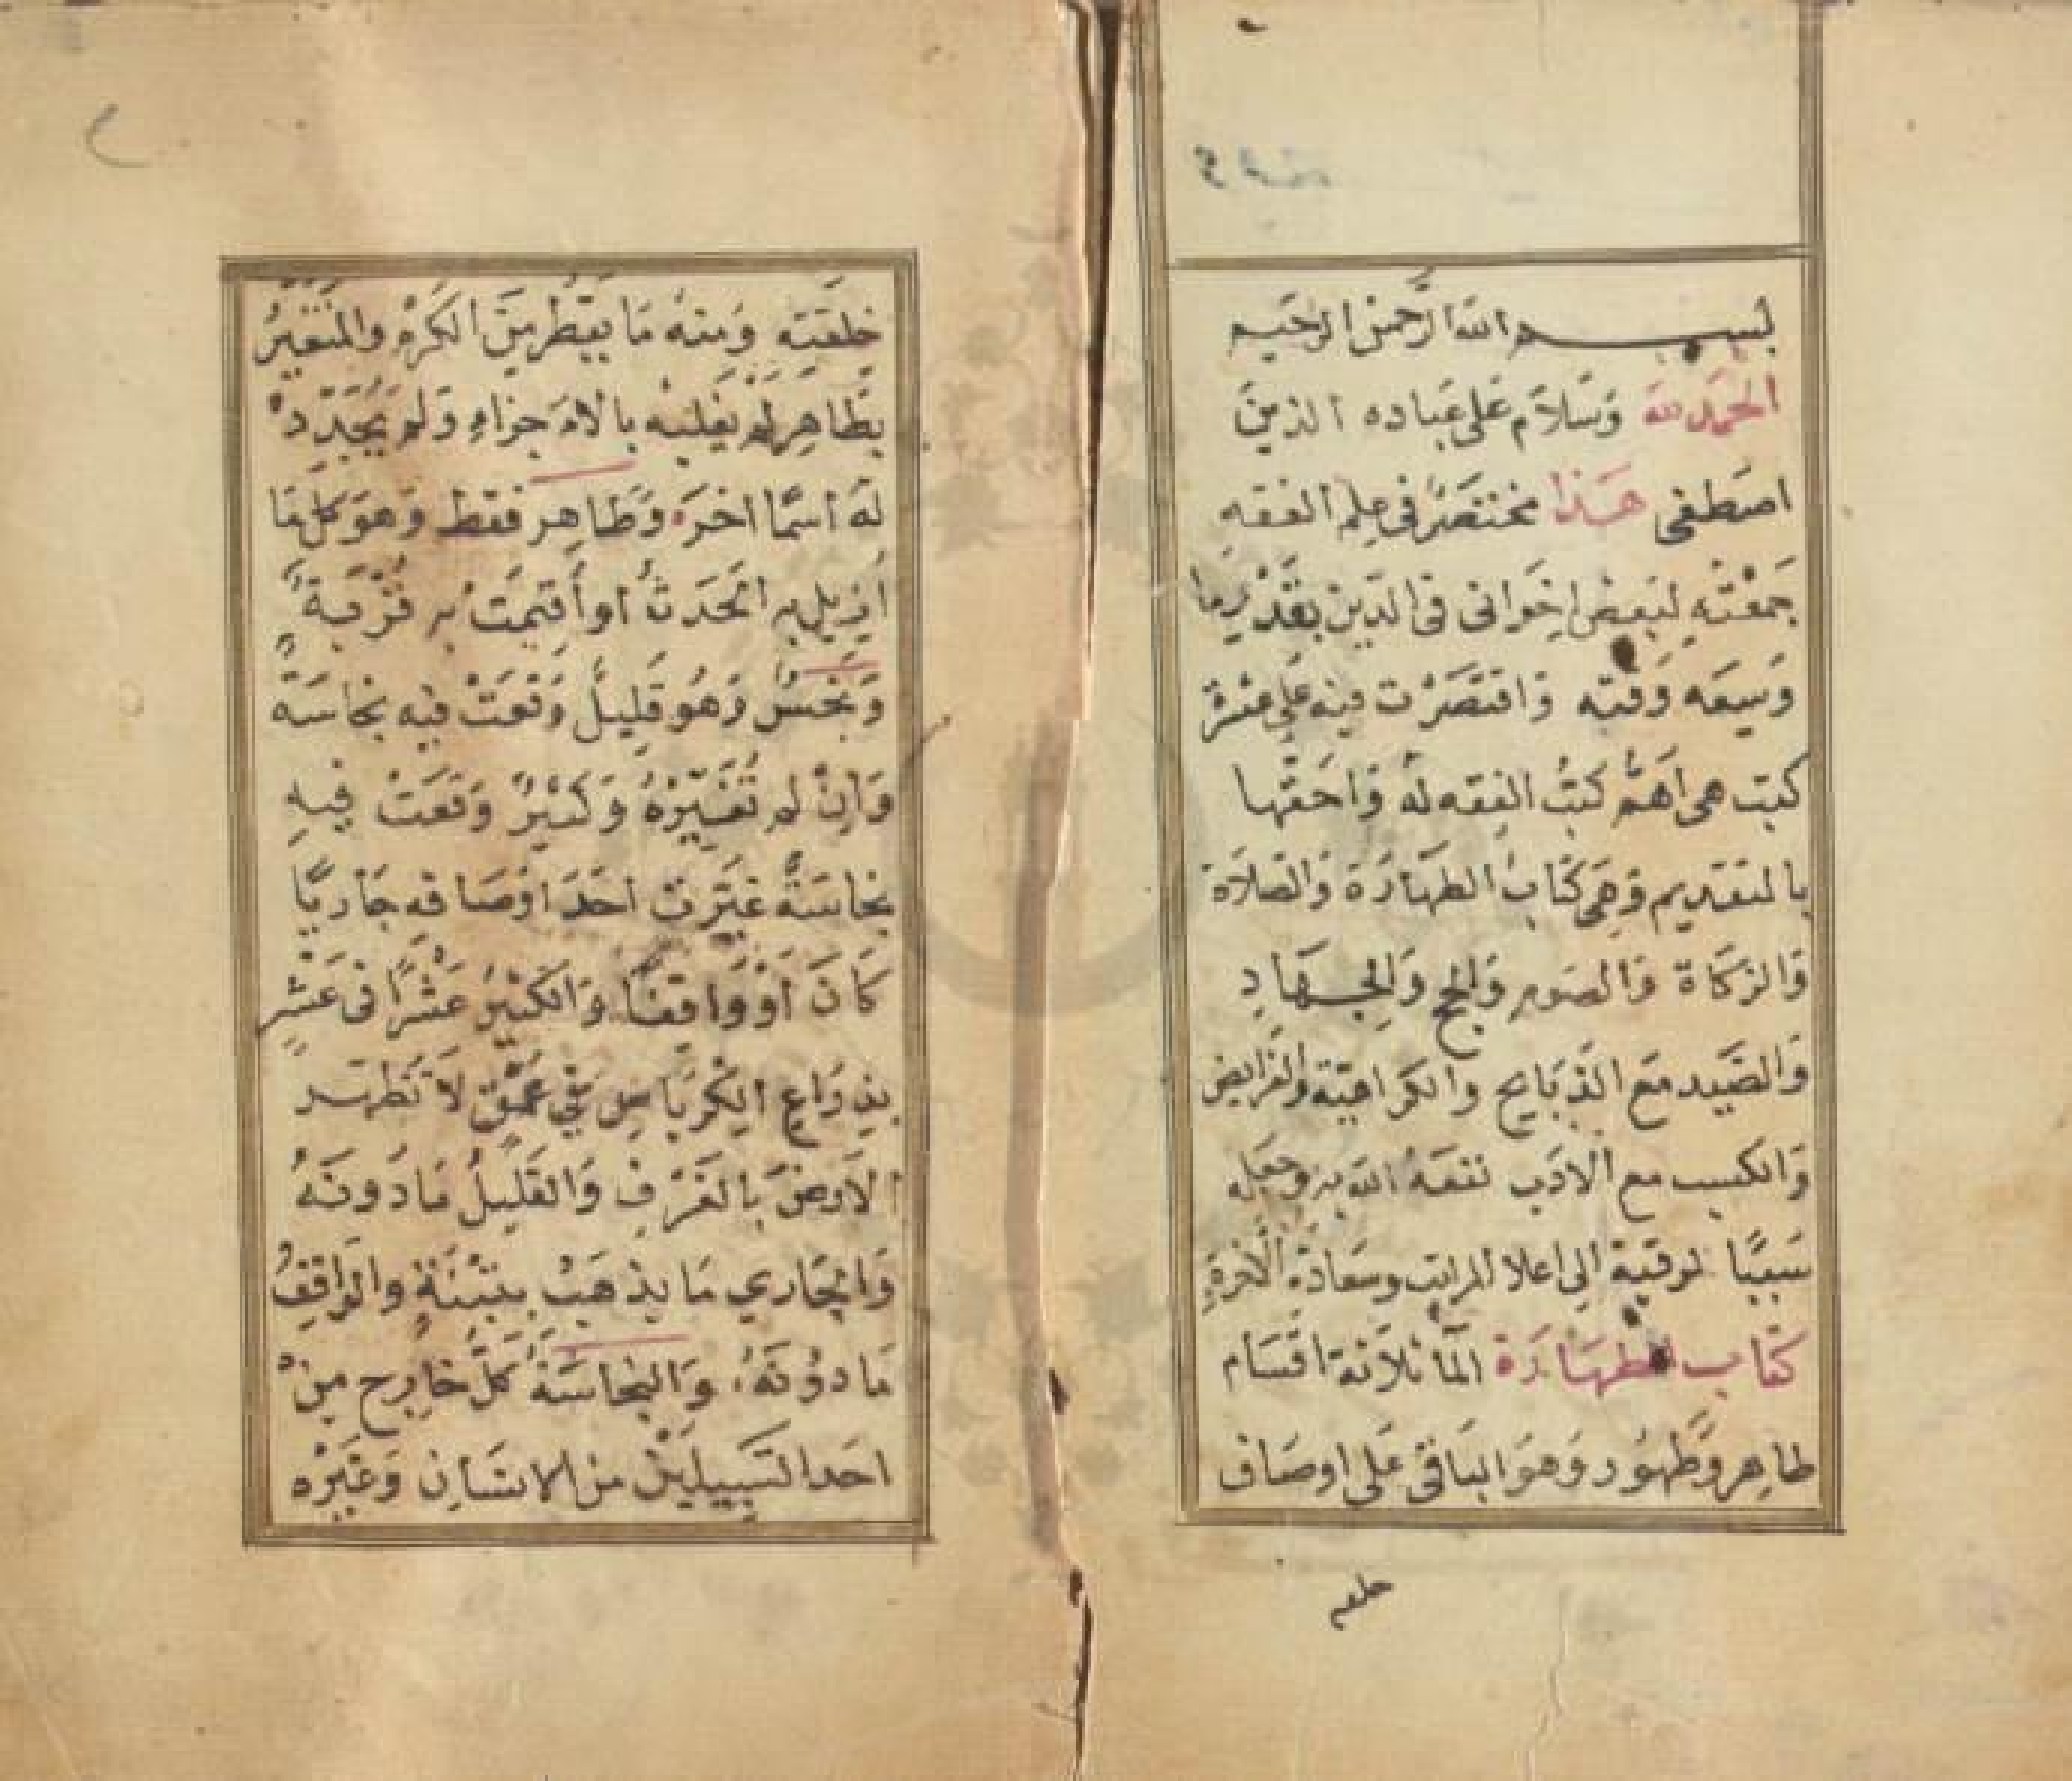 بسم الله الرحمن الرحيم
الحمد لله وَسَلَام عَلى عِبَاده الذينَ
اصَطفى هَذا مختصَرٌ فى علم الفقهِ
جَمعْتهِ لبَعضْ اخِوَانى فى الدّين بقَدْرِ ما
وَسِعَه وَقته وَاقتصَرْت فيه على عشرة
كتب هى اَهمُّ كتبُ الفقه لهُ وَاحَقّها
بالتقديم وَهِىَ كتَابُ الطهَارَة وَالصلَاة
وَالزكَاة وَالصَوم وَالحج وَالجهَادِ
وَالصَّيد مَع الذبَايح والكرَاهيّة والفرَايض
وَالكسب مع الادَب نفعَهُ الله به وجعله
سَببًا لرقيهِ الى اعلا المراتب وسعَادةِ الآخرةِ
كتاب الطهَارَة المآ ثلَاثة اقسَام
طاهِر وَطَهُور وَهوَ البَاقى عَلى اوصَاف
خلقه
خِلقتِه وَمنهُ مَا يَقطُر مِنَ الكَرْمِ والمتغيّرُ
بِطَاهِرٍ لمْ يَغلبه بالاَجزاءِ وَلم يَجدّد
لهُ اسمًا اخرَ وَطَاهِر فقط وَهوَ كل مَا
اُزيل به الحَدَثُ اَو اُقيمَتْ به قُرْبَةٌ
وَنجسٌ وَهُو قَلِيلٌ وَقعَتْ فيه نجاسَة
وَاِنْ لم تُغَيّرْهُ وَكثيرٌ وَقعَتْ فيهِ
نجاسَةٌ غيّرت احَدَ اوْصَافه جَاريًا
كَانَ اَوْ وَاقِفًا وَالكثيرُ عَشْرًا فى عَشْرٍ
بذِرَاعِ الكرْبَاسِ فِي عُمْقٍ لَا تَظهَر
الاَرضُ بالغَرْفِ وَالقَلِيلُ مَا دُونَهُ
وَالجَارى مَا يذهَبُ بِتِبْنَةٍ والوَاقِفُ
مَا دُونَهُ وَالنجَاسَةُ كلّ خَارِج مِنْ
احَد السَّبيلَيْن من الانسَانِ وَغَيْرْه